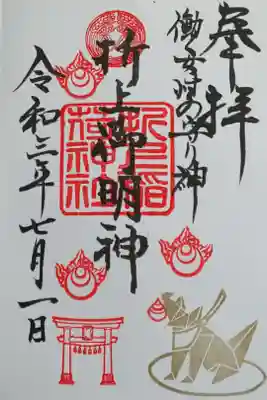 奉拝
働く女性の守り神
折上御明神
折上稲
荷神社
令和三年七月一日